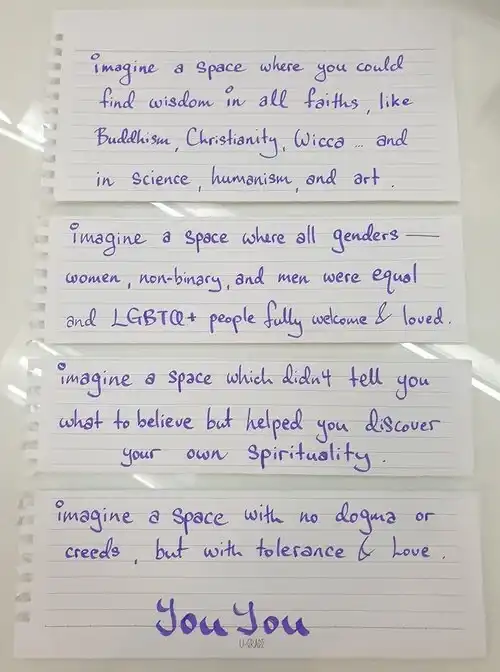 imagine a space where you could
find wisdom in all faiths, like
Buddhism, Christianity, Wicca ... and
in science, humanism, and art.
imagine a space where all genders —
women, non-binary, and men were equal
and LGBTQ+ people fully welcome & loved.
imagine a space which didn't tell you
what to believe but helped you discover
your own spirituality.
imagine a space with no dogma or
creeds, but with tolerance & Love.
You You
U-GRADE